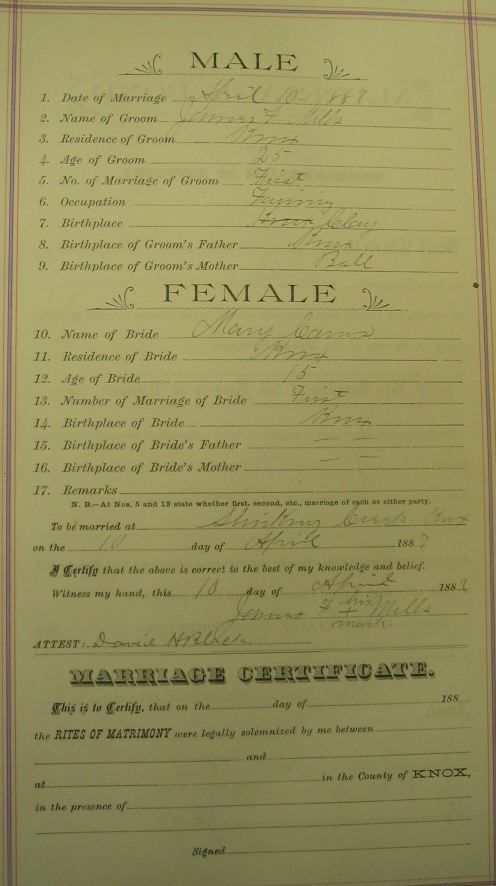 MALE
1. Date of Marriage April 10 1889.
2. Name of Groom F. Mills
3. Residence of Groom Knox
4. Age of Groom 25
5. No. of Marriage of Groom First
6. Occupation Farming
7. Birthplace Knox Clay
8. Birthplace of Groom's Father Knox
9. Birthplace of Groom's Mother Bell
FEMALE
10. Name of Bride Mary
11. Residence of Bride Knox
12. Age of Bride 15
13. Number of Marriage of Bride First
14. Birthplace of Bride Knox
15. Birthplace of Bride's Father — —
16. Birthplace of Bride's Mother — —
17. Remarks
N. B.—At Nos. 5 and 13 state whether first, second, etc., marriage of each or either party.
To be married at Knox
on the 10 day of April 1889
I Certify that the above is correct to the best of my knowledge and belief.
Witness my hand, this 10 day of April 1889
F his Mills
mark.
ATTEST: David H Black
MARRIAGE CERTIFICATE.
This is to Certify, that on the day of 188
the RITES OF MATRIMONY were legally solemnized by me between
and
at in the County of KNOX,
in the presence of
Signed